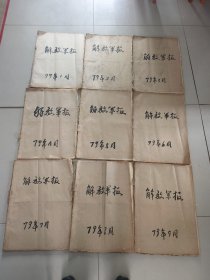 解放军报
79年1月
解放军报
79年2月
解放军报
79年3月
解放军报
79年4月
解放军报
79年5月
解放军报
79年6月
解放军报
79年7月
解放军报
79年8月
解放军报
79年9月